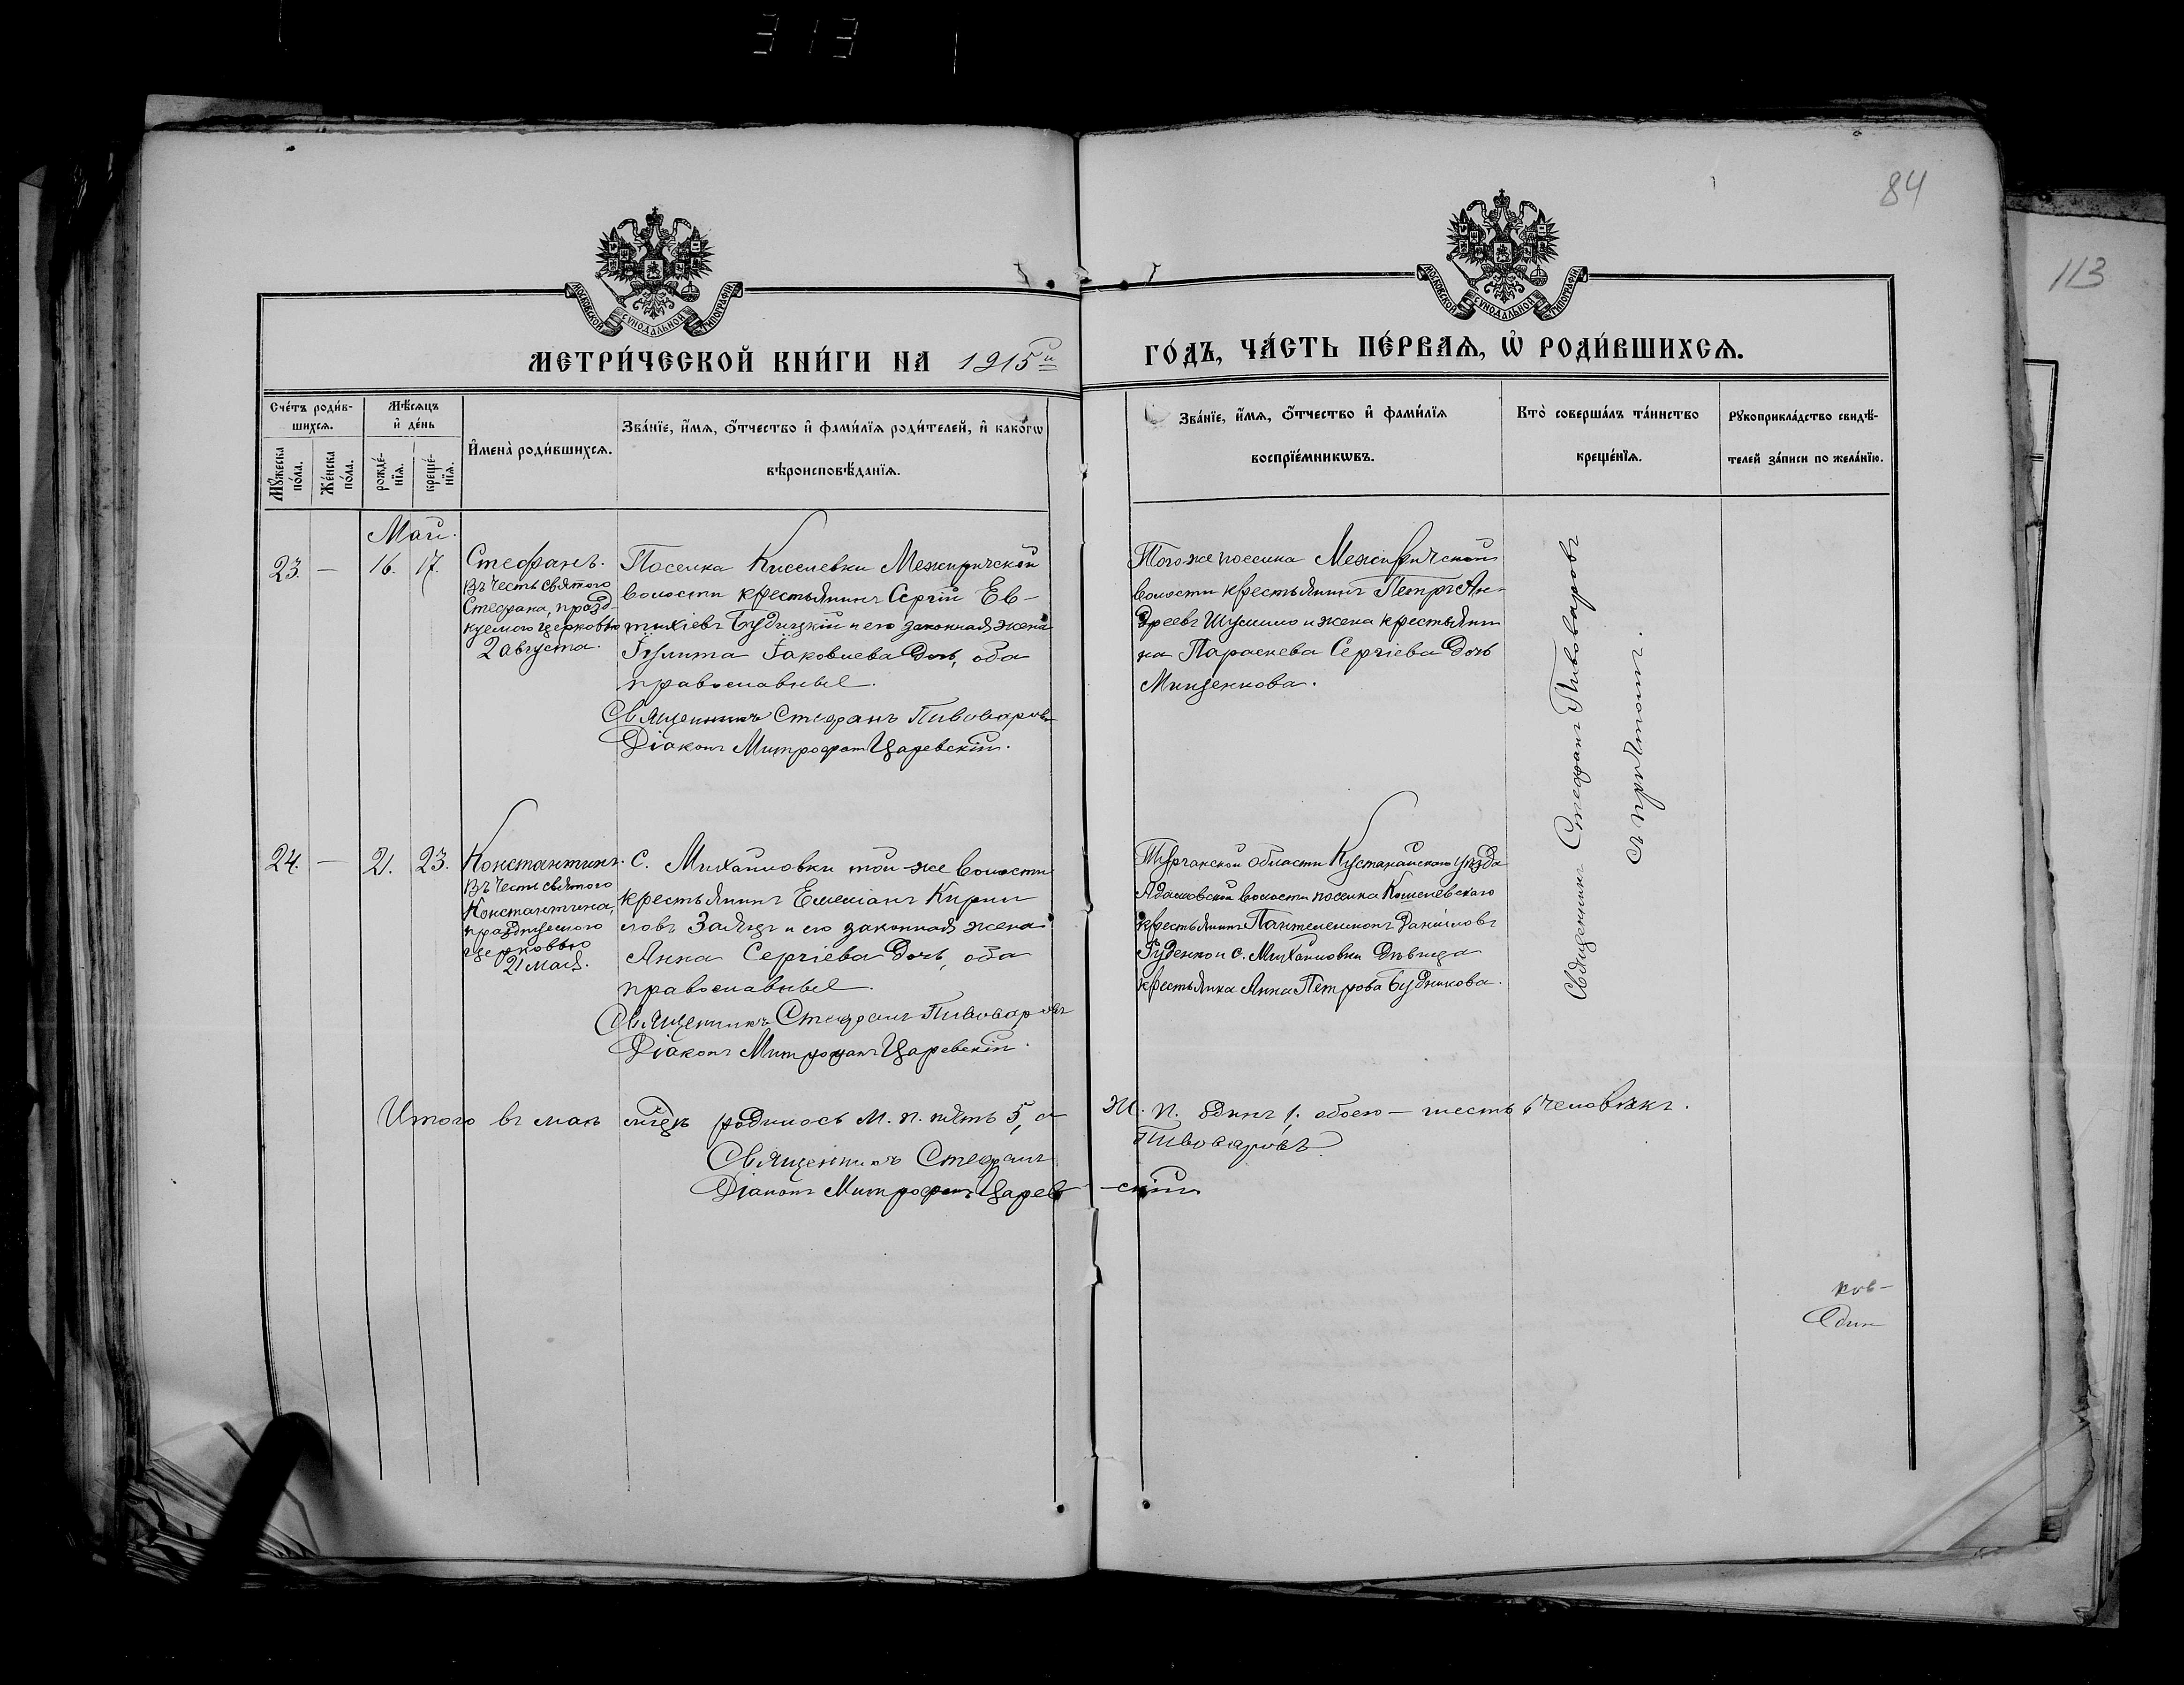 313
84
113
МОСКОВСКОЙ СѴНОДАЛЬНОЙ ТИПОГРАФІИ
МОСКОВСКОЙ СѴНОДАЛЬНОЙ ТИПОГРАФІИ
МЕТРИ́ЧЕСКОЙ КНИ́ГИ НА 1915й
ГО́ДЪ, ЧА́СТЬ ПЕ́РВАѦ, Ѡ҆ РОДИ́ВШИХСѦ.
Сче́тъ роди́в-
шихсѧ.
Мꙋ́жеска по́ла.
Же́нска по́ла.
Мѣ́сѧцъ и҆ де́нь
рожде́-
нїѧ.
креще́-
нїѧ.
И҆мена̀ роди́вшихсѧ.
Зва́нїе, и҆́мѧ, ѻ҆́тчество и҆ фами́лїѧ роди́телей, и҆ како́гѡ
вѣроисповѣ́данїѧ.
Зва́нїе, и҆́мѧ, ѻ҆́тчество и҆ фами́лїѧ
воспрїе́мникѡвъ.
Кто̀ соверша́лъ та́инство
креще́нїѧ.
Рꙋкоприкла́дство свидѣ́-
телей за́писи по жела́нїю.
Май.
23. — 16. 17.
Стефанъ.
Въ честь святого
Стефана, празд-
куемого церковью
2 августа.
Поселка Киселевки Межиричской
волости крестьянинъ Сергій Ев-
тихіевъ Будицкій и его законная жена
Іулитта Іаковлева дочь, оба
православные.
Священникъ Стефанъ Пивоваровъ
Діаконъ Митрофанъ Царевскій.
Того же поселка Межиричской
волости крестьянинъ Петръ Ан-
дреевъ Шушило и жена крестьяни
на Параскева Сергіева дочь
Мищенкова.
Священникъ Стефанъ Пивоваровъ
съ причтомъ.
24. — 21. 23.
Константинъ.
Въ честь святого
Константина,
празднуемого
церковью
21 мая.
С. Михайловки той-же волости
крестьянинъ Емеліанъ Кирил
ловъ Заяцъ и его законная жена
Анна Сергіева дочь, оба
православные.
Священникъ Стефанъ Пивоваровъ
Діаконъ Митрофанъ Царевскій.
Тургайской области Кустанайского уѣзда
Адамовской волости поселка Кошелевского
крестьянинъ Пантелеимонъ Даніиловъ
Руденко и с. Михайловки дѣвица
крестьянка Анна Петрова Будникова.
Итого въ маѣ мѣсяцѣ родилось м. п. пять 5, а
ж. п. одинъ 1; обоего — шесть 6 человѣкъ.
Священникъ Стефанъ
Пивоваровъ
Діаконъ Митрофанъ Царев-
-скій